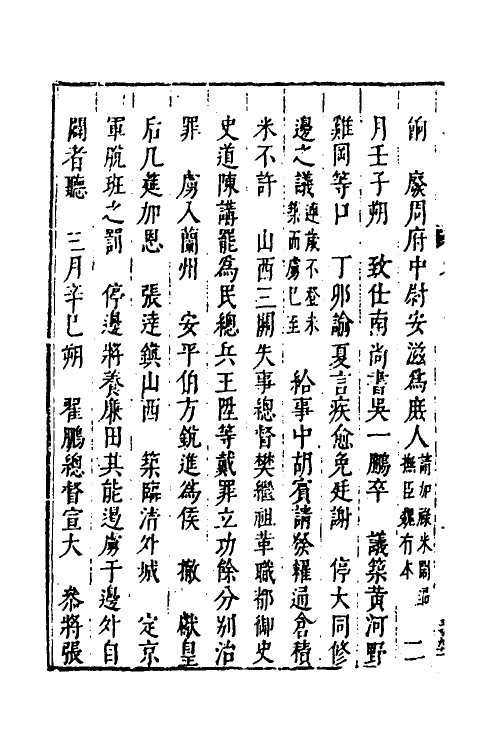 餉　廢周府中尉安滋爲庶人請加祿米開
撫臣魏有本　二
月壬子朔　致仕南尚書吳一鵬卒　議築黃河野
雞岡等口　丁卯諭夏言疾愈免廷謝　停大同修
邊之議連歲不登未
築而虜已至　給事中胡賓請發糴通倉積
米不許　山西三關失事總督樊繼祖革職都御史
史道陳講罷爲民總兵王陞等戴罪立功餘分别治
罪　虜入蘭州　安平伯方銳進爲侯　撤　獻皇
后几筵加恩　張達鎮山西　築臨清外城　定京
軍脫班之罰　停邊將養廉田其能過虜于邊外自
闢者聽　三月辛巳朔　翟鵬總督宣大　叅將張